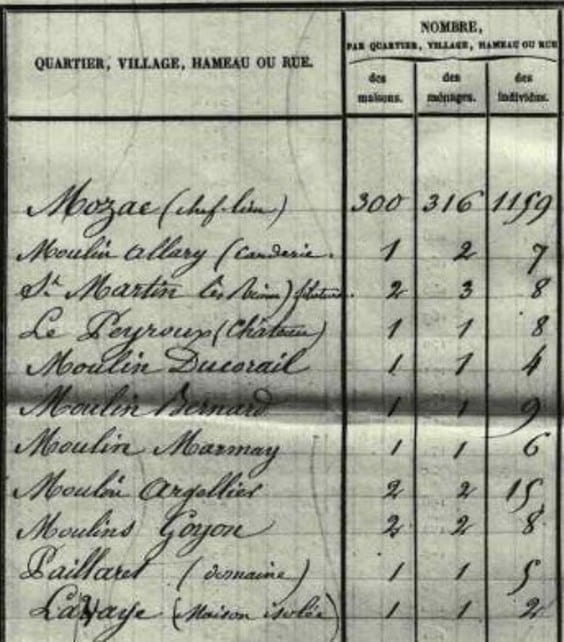 QUARTIER, VILLAGE, HAMEAU OU RUE.
NOMBRE,
PAR QUARTIER, VILLAGE, HAMEAU OU RUE
des maisons. des ménages. des individus.
Mozac (chef-lieu) 300 316 1159
Moulin Allary (Carderie. 1 2 7
St Martin lès Riom) filature. 2 3 8
Le Peyroux (Château) 1 1 8
Moulin Ducorail 1 1 4
Moulin Bernard 1 1 9
Moulin Marmay 1 1 6
Moulin Argellier 2 2 15
Moulins Goyon 2 2 8
Paillaret (domaine) 1 1 5
(Maison isolée) 1 1 2